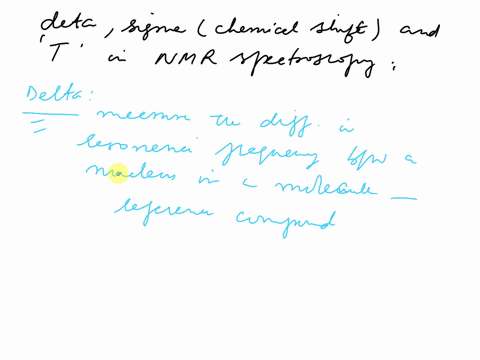 deta, sigme (chemical shift) and
'T' in NMR spectroscopy:
Delta:
measure the diff. in
resonance frequency b/w a
nucleus in a molecule —
reference compound